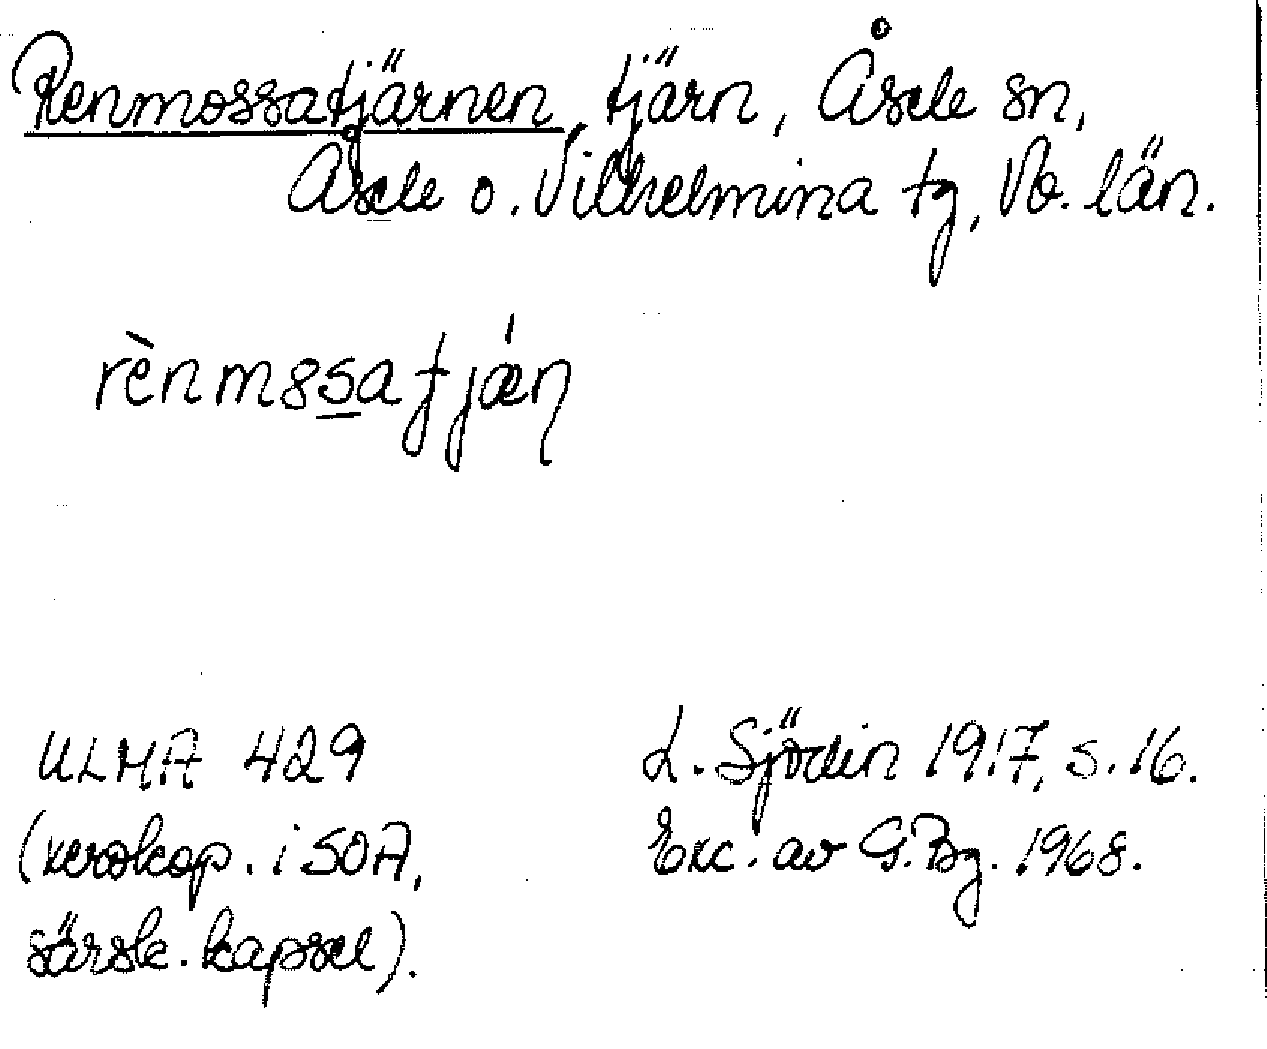 Renmossatjärnen, tjärn, Åsele sn,
Åsele o. Vilhelmina tg, Vb. län.
rènm8satjǽn
ULMA 429
(xeroxkop. i SOA,
särsk. kapsel).
L. Sjödin 1917, s. 16.
Exc. av G. Bg. 1968.